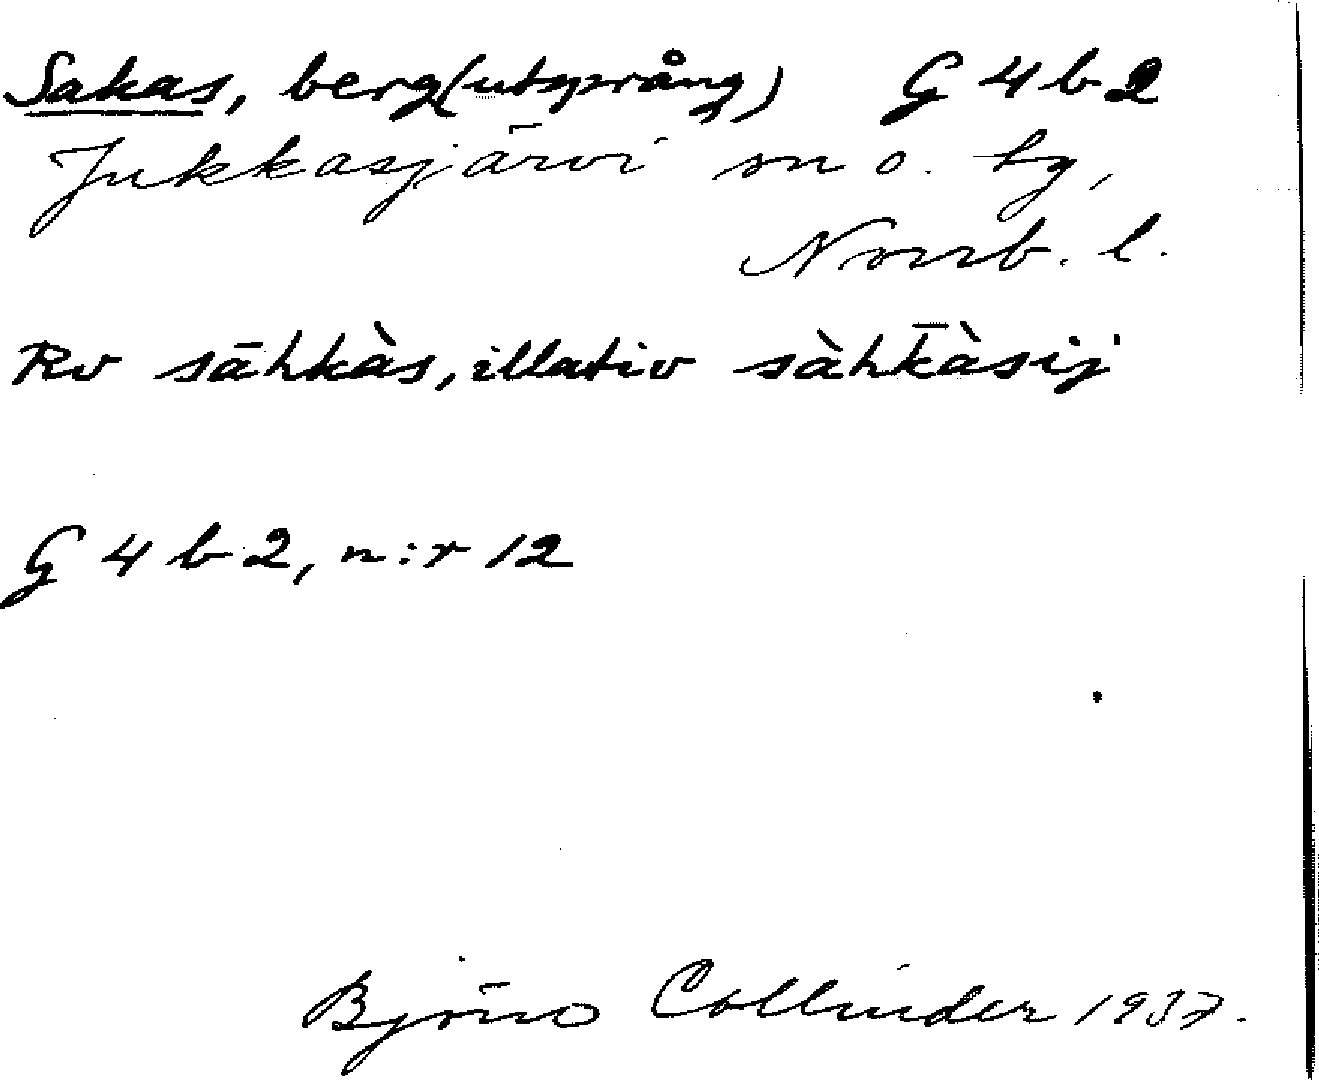 Sakas, berg(utsprång) G 4 b 2
Jukkasjärvi sn o. tg,
Norrb. l.
Rv sāhkàs, illativ sàhk̄àsij
G 4 b 2, n:r 12
Björn Collinder 1937.